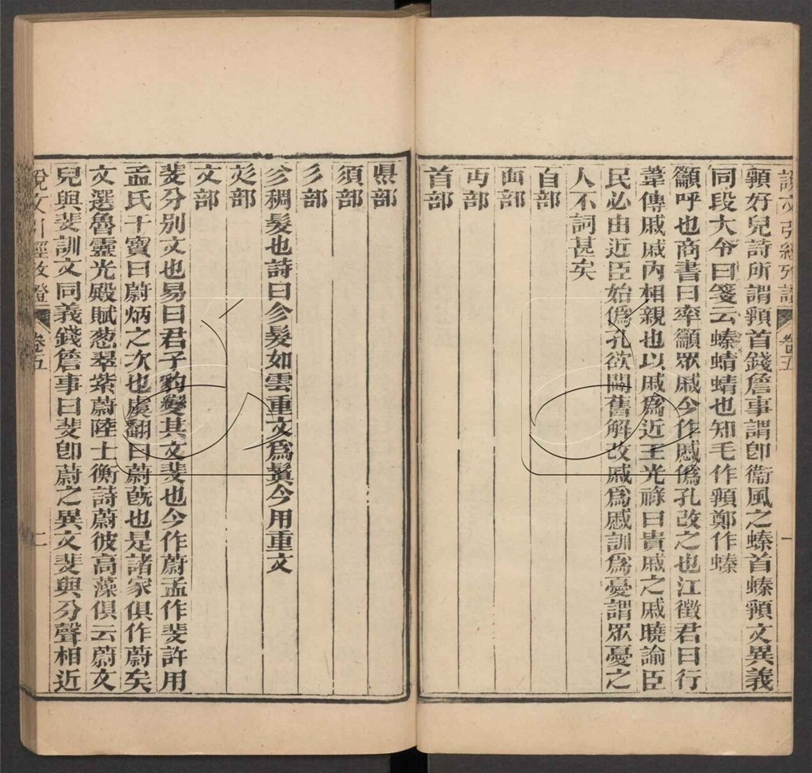 說文引經攷證 卷五 一
頪好皃詩所謂頪首錢詹事謂卽衞風之螓首螓頪文異義
同段大令曰箋云螓蜻蜻也知毛作頪鄭作螓
籲呼也商書曰率籲眾戚今作慼僞孔改之也江徵君曰行
葦傳戚戚內相親也以戚爲近王光祿曰貴戚之戚曉諭臣
民必由近臣始僞孔欲闢舊解改戚爲慼訓爲憂謂眾憂之
人不詞甚矣
𦣻部
面部
丏部
首部
𥄉部
須部
彡部
㐱稠髮也詩曰㐱髮如雲重文爲鬒今用重文
彣部
文部
斐分別文也易曰君子豹變其文斐也今作蔚孟作斐許用
孟氏干寶曰蔚炳之次也虞翻曰蔚蔇也是諸家俱作蔚矣
文選魯靈光殿賦葱翠紫蔚陸士衡詩蔚彼高藻俱云蔚文
皃與斐訓文同義錢詹事曰斐卽蔚之異文斐與分聲相近
說文引經攷證 卷五 二